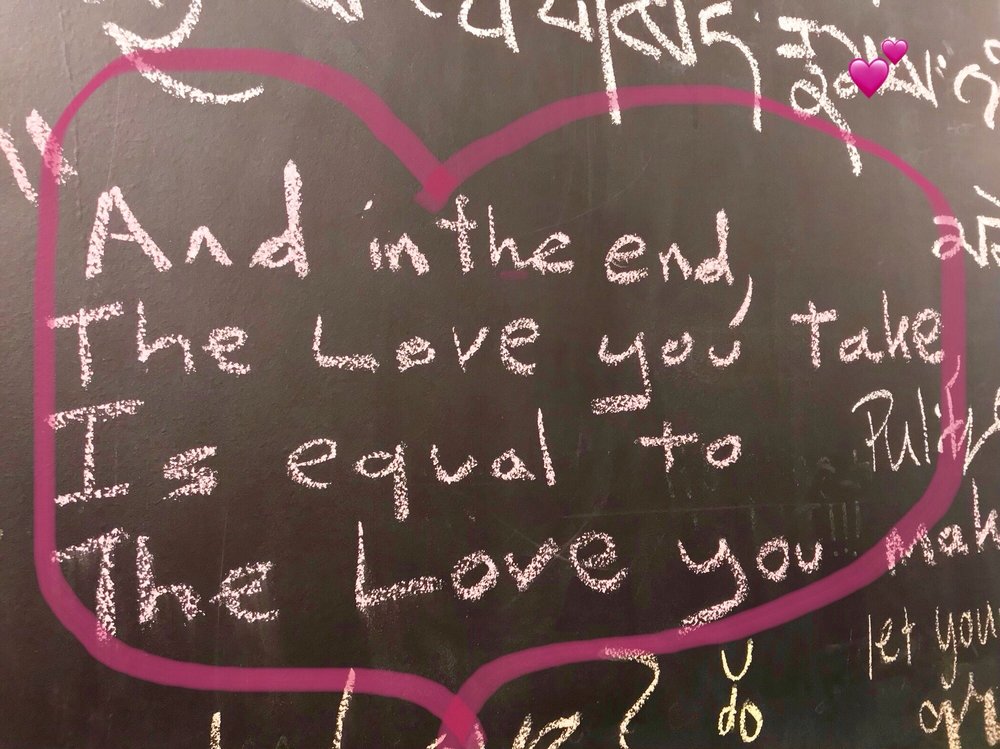 And in the end,
The Love you take
Is equal to
The Love you mak
let you
do